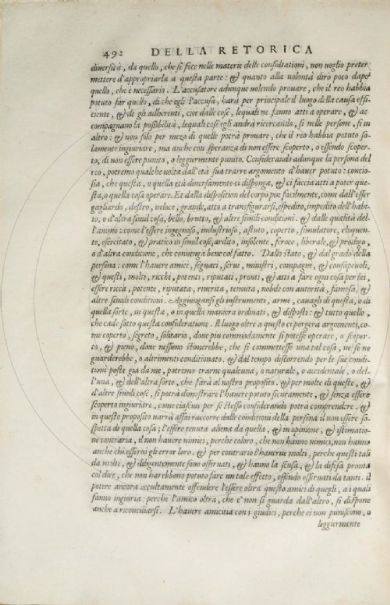 492 DELLA RETORICA
diversità, da quello, che si fece nelle materie delle consultationi, non voglio preter-
mettere d'appropriarla a questa parte: & quanto alla volontà dirò poco dapoi
quello, che è necessario. L'accusatore adunque volendo provare, che il reo habbia
potuto far quello, di che egli l'accusa, havrà per principale il luogo della causa effi-
ciente, & de gli adherenti, con delle cose, lequali ne fanno atti a operare, & ac-
compagnano la possibilità, lequali cose egli andrà ricercando, si nelle persone, sì in
altro: & non solo per mezo di quelle potrà provare, che il reo habbia potuto so-
lamente ingiuriare, ma anche con speranza di non essere scoperto, o essendo scoper-
to, di non essere punito, o leggiermente punito. Considerando adunque la persona del
reo, potremo qualche volta dall'età sua trarre argomento d'haver potuto: concio-
sia, che questa, o quella età diversamente ci disponga, & ci faccia atti a poter que-
sta, o quella cosa operare. Et dalla disposition del corpo poi facilmente, come dall'esser
gagliardo, destro, veloce, grande, atto a transfigurarsi, spedito, impedito dell'habi-
to, o d'altra simil cosa, bello, brutto, & altre simili conditioni. & dalle qualità del-
l'animo: come l'essere ingegnoso, industrioso, astuto, coperto, simulatore, eloquen-
te, esercitato, & pratico in simil cosa, ardito, insolente, feroce, liberale, & prodigo,
o d'altra conditione, che convenga bene col fatto. Dallo stato, & dal grado della
persona: come l'havere amici, seguaci, servi, ministri, compagni, & consapevoli,
& questi, molti, ricchi, potenti, riputati, pronti, & atti a fare ogni cosa per lui,
essere ricco, potente, riputato, riverito, temuto, nobile con autorità, famoso, &
altre simili conditioni. Aggiungansi gli instrumenti, arme, cavagli di questa, o di
quella sorte, in questa, o in quella maniera ordinati, & disposti: & tutto quello,
che cade sotto questa consideratione. A luogo oltre a questo ci porgerà argomenti, co-
me coperto, segreto, solitario, dove più commodamente si potesse operare, o scoper-
to, & pieno, dove nessuno stimerebbe, che si commettesse una tal cosa, ne se ne
guarderebbe, o altrimenti conditionato. & dal tempo discorrendo per le sue condi-
tioni poste già da me, potremo trarne qualcuna, o naturale, o accidentale, o del-
l'una, & dell'altra sorte, che farà al nostro proposito. & per molte di queste, &
d'altre simili cose, si potrà dimostrare l'havere potuto sicuramente, & senza essere
scoperto ingiuriare, come ciascun per se stesso considerando potrà comprendere. &
in questo proposito varrà assai
quello, che
non havere nimici, perche coloro, che non hanno nimici, non hanno
anche chi osservi gli error loro. & per contrario l'haverne molti, perche questi tali
da molti, & diligentemente sono osservati, & hanno la scusa, & la difesa pronta
col dire, che mai harebbono potuto fare un tale effetto, essendo osservati da tanti. il
potere ancora occultamente offendere l'essere oltra questo amici di quegli, a i quali
fanno ingiuria: perche l'amico oltra, che e' non si guarda dall'altro, si dispone
anche a riconciliarsi. L'havere amicitia con i giudici, perche ei non puniscono, o
leggiermente